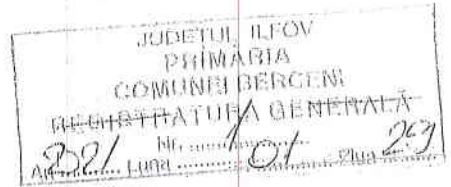 JUDEȚUL ILFOV
PRIMĂRIA
COMUNEI BERCENI
REGISTRATURA GENERALĂ
Nr. 1
2021 Luna 01 Ziua